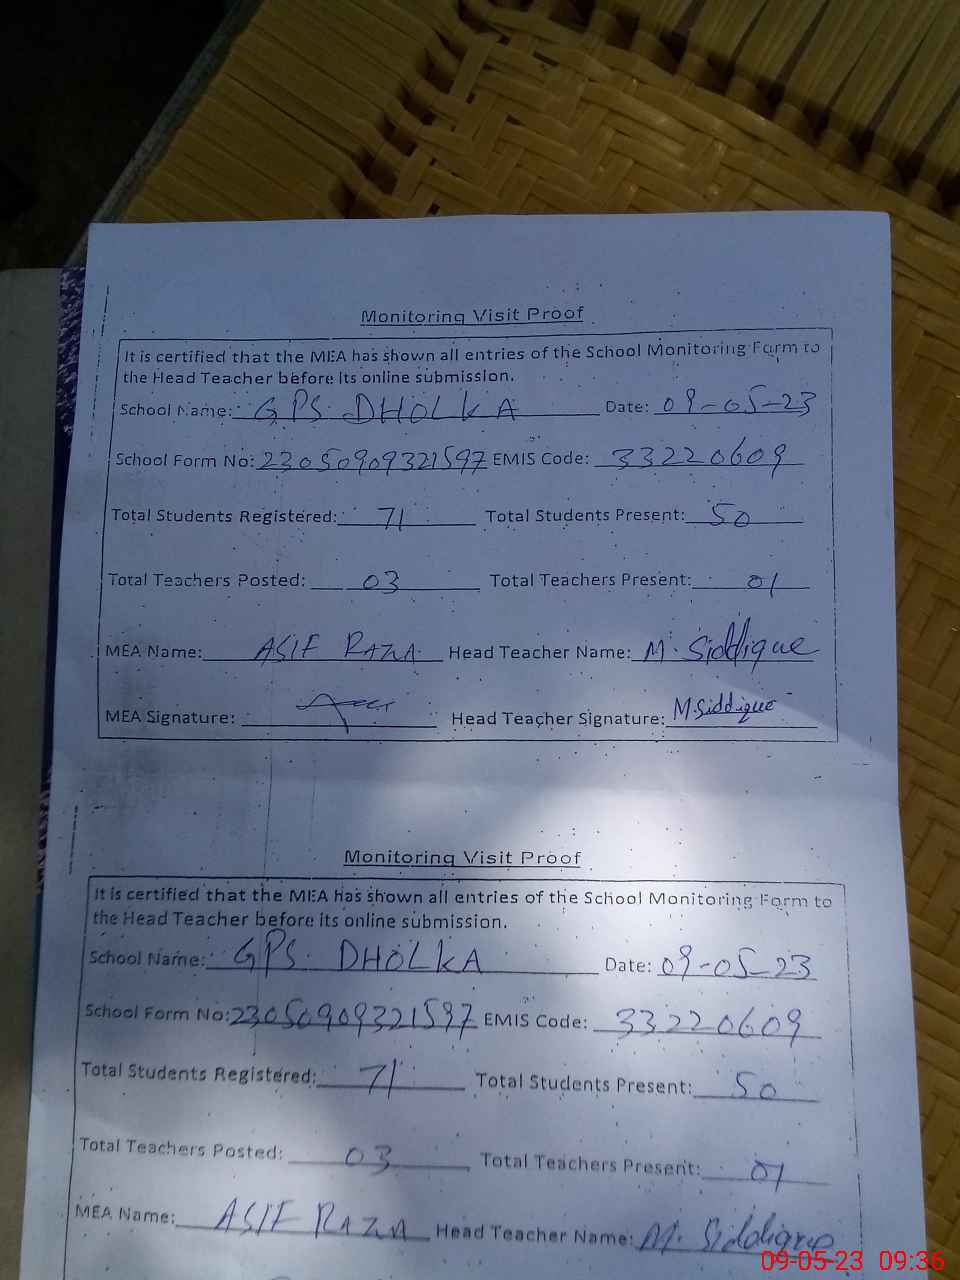 Monitoring Visit Proof
It is certified that the MEA has shown all entries of the School Monitoring Form to
the Head Teacher before its online submission.
School Name: GPS DHOLKA Date: 09-05-23
School Form No: 23050909321597 EMIS Code: 33220609
Total Students Registered: 71 Total Students Present: 50
Total Teachers Posted: 03 Total Teachers Present: 01
MEA Name: ASIF RAZA Head Teacher Name: M. Siddique
MEA Signature: Head Teacher Signature: M.Siddique
Monitoring Visit Proof
It is certified that the MEA has shown all entries of the School Monitoring Form to
the Head Teacher before its online submission.
School Name: GPS. DHOLKA Date: 09-05-23
School Form No: 23050909321597 EMIS Code: 33220609
Total Students Registered: 71 Total Students Present: 50
Total Teachers Posted: 03 Total Teachers Present: 01
MEA Name: ASIF RAZA Head Teacher Name: M. Siddique
09-05-23 09:36